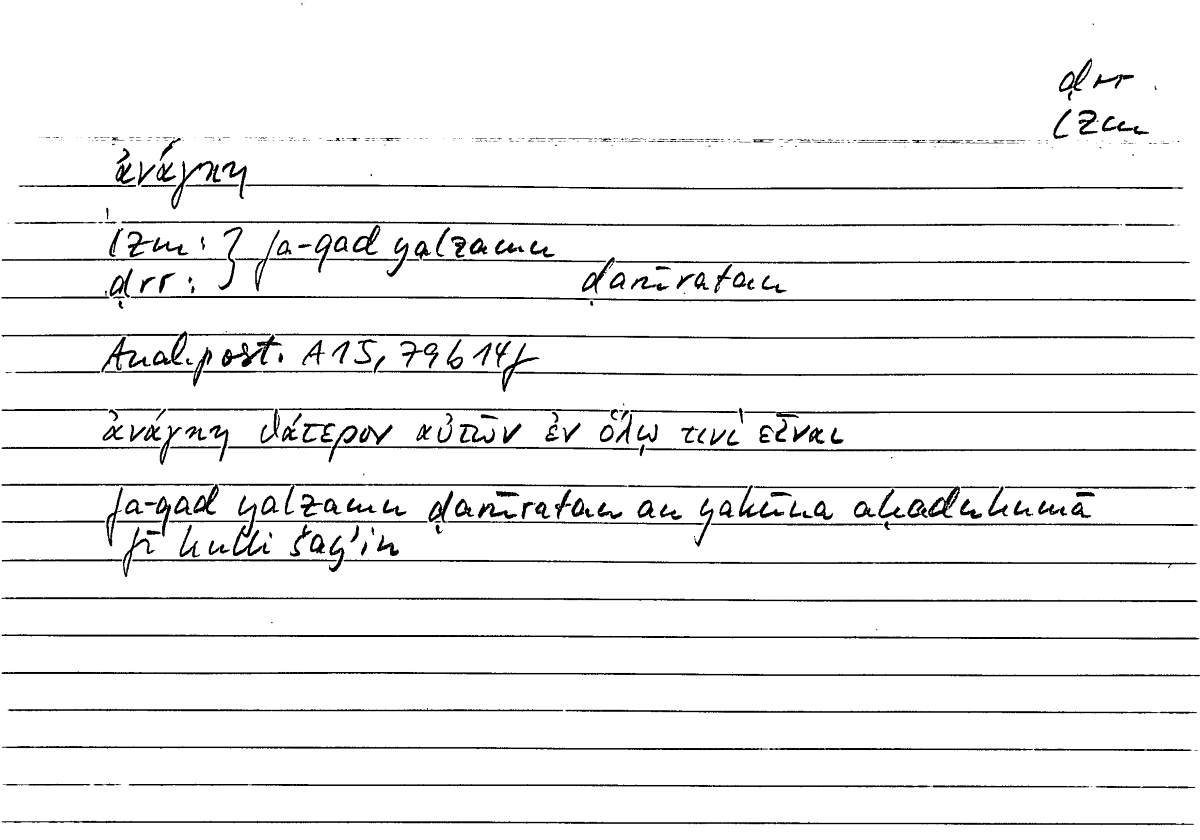 ḍrr
lzm
ἀνάγκη
lzm: } fa-qad yalzamu
ḍrr: } ḍarūratan
Anal. post. A 15, 79 b 14f
ἀνάγκη θάτερον αὐτῶν ἐν ὅλῳ τινὶ εἶναι
fa-qad yalzamu ḍarūratan an yakūna aḥaduhumā
fī kulli šayʾin